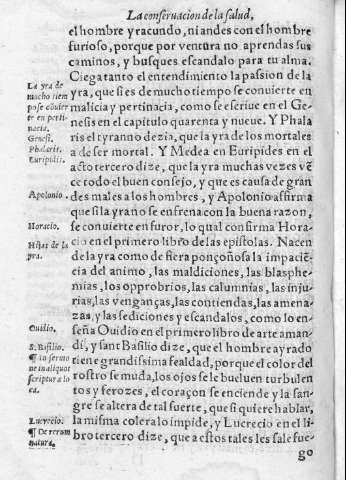 La conseruacion de la salud,
el hombre yracundo, ni andes con el hombre
furioso, porque por ventura no aprendas sus
caminos, y busques escandalo para tu alma.
Ciega tanto el entendimiento la passion de la
yra, que si es de mucho tiempo se conuierte en
malicia y pertinacia, como se escriue en el Ge-
nesis en el capitulo quarenta y nueue. Y Phala
ris el tyranno dezia, que la yra de los mortales
a de ser mortal. Y Medea en Euripides en el
acto tercero dize, que la yra muchas vezes vẽ
ce todo el buen consejo, y que es causa de gran
des males a los hombres, y Apolonio affirma
que si la yra no se enfrena con la buena razon,
se conuierte en furor, lo qual confirma Hora-
cio en el primero libro de las epistolas. Nacen
de la yra como de fiera ponçoñosa la impaciẽ
cia del animo, las maldiciones, las blasphe-
mias, los opprobrios, las calumnias, las injur-
rias, las venganças, las contiendas, las amena-
zas, y las sediciones y escandalos, como lo en-
seña Ouidio en el primero libro de arte aman-
di, y sant Basilio dize, que el hombre ayrado
tiene grandissima fealdad, porque el color del
rostro se muda, los ojos se le bueluen turbulen
tos y ferozes, el coraçon se enciende y la san-
gre se altera de tal fuerte, que si quiere hablar,
la misma colera lo impide, y Lucrecio en el li-
bro tercero dize, que a estos tales les sale fue-
go
La yra de
mucho tiem
po se cõuier
te en perti-
nacia.
Genesi.
Phalaris.
Euripidis.
Apolonio.
Horacio.
Hijas de la
yra.
Ouidio.
S. Basilio.
¶ In sermo
ne in aliquot
scriptura lo
ca.
Lucrecio.
¶ De rerum
natura.